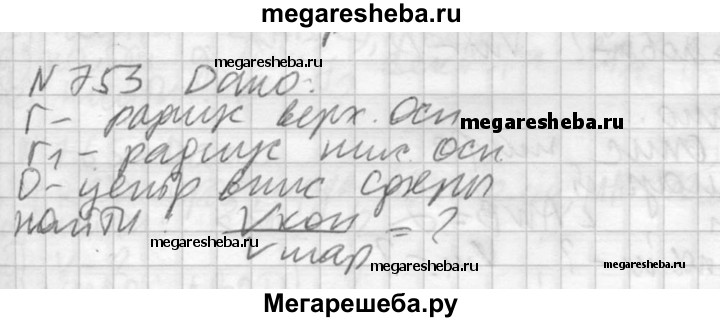 megaresheba.ru
N 753 Дано:
r - радиус верх. осн
megaresheba.ru
r1 - радиус ниж. осн
O - центр впис сферы
найти Vкон / Vшар = ?
megaresheba.ru
megaresheba.ru
megaresheba.ru
Мегарешеба.ру